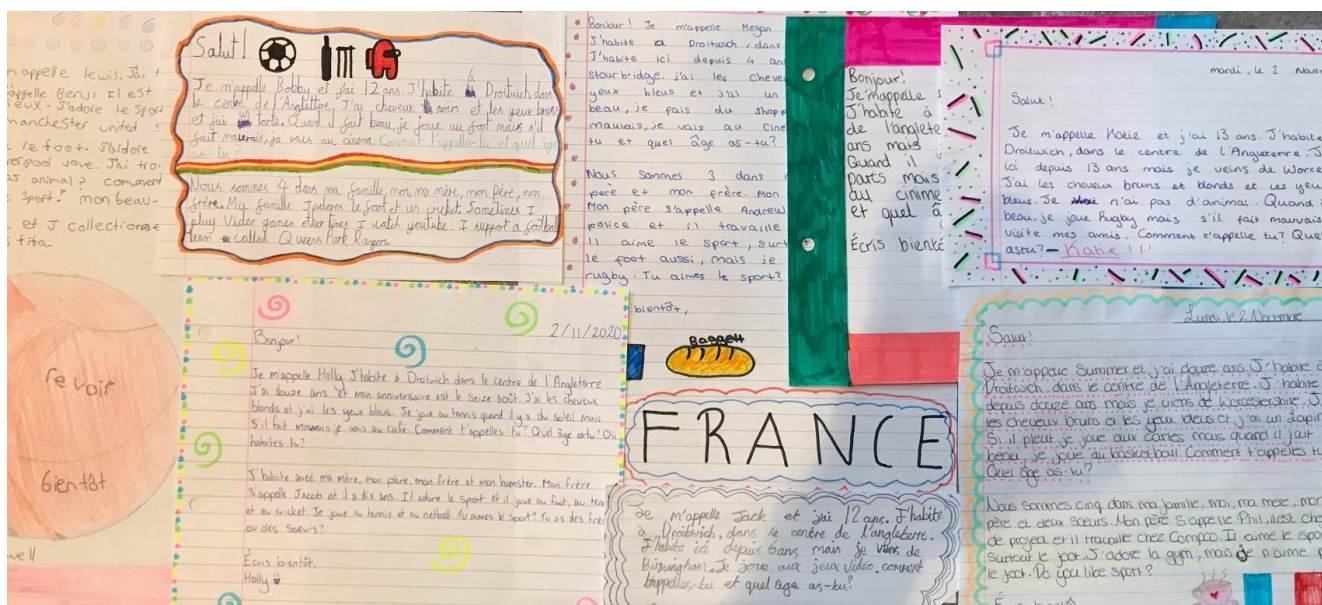 m'appelle Lewis. J'ai
appelle Benji Il est
yeux. J'adore le sport
manchester united
le foot. J'adore
love. J'ai
animal? comment
sport? mon beau-
et J collectionne
revoir
Bientôt
Salut!
Je m'appelle Bobby et j'ai 12 ans. J'habite à Droitwich dans
le centre de l'Angleterre. J'ai cheveux noirs et les yeux bruns
et j'ai un torte. Quand il fait beau, je joue au foot mais s'il
fait mauvais, je vais au cinema Comment t'appelles-tu et quel age
as-tu?
Nous sommes 4 dans ma famille, moi, ma mère, mon Père, mon
frère. My famille J'adores le foot et un cricket. Sometimes I
play Video games other times I watch youtube. I support a football
team called Queens Park Rangers.
Bonjour! Je m'appelle Megan
J'habite a Droitwich, dans
J'habite ici depuis 4 an
Stourbridge. j'ai les chevex
yeux bleus et j'ai un
beau, je fais du shopp
mauvais, je vais au cine
tu et quel âge as-tu?
Nous sommes 3 dans
père et mon frère. Mon
Mon père s'appelle Andrew
police et il travaille
Il aime le sport, surt
le foot aussi, mais je
rugby. Tu aimes le sport?
bientôt,
Bonjour!
Je m'appelle
J'habite à
de l'anglete
ans mais
Quand il
parts mais
au cinime
et quel â
Écris bienté
mardi, le 2 Nove
Salut!
Je m'appelle Katie et j'ai 13 ans. J'habite
Droitwich, dans le centre de l'Angleterre. J
ici depuis 13 ans mais je veins de Worce
J'ai les cheveux bruns et blonds et les yeu
bleus. Je n'ai pas d'animal. Quand i
beau, je joue Rugby mais s'il fait mauvais
visite mes amis. Comment t'appelle tu? Quel
astu? – Katie !!!
2/11/2020
Bonjour!
Je m'appelle Holly. J'habite à Droitwich dans le centre de l'Angleterre
J'ai douze ans et mon anniversaire est le seize août. J'ai les cheveux
blonds et j'ai les yeux bleus. Je joue au tennis quand il y a du soleil mais
s'il fait mauvais je vais au café. Comment t'appelles-tu? Quel âge as-tu? Où
habites-tu?
J'habite avec ma mère, mon père, mon frère et mon hamster. Mon frère
s'appelle Jacob et il a dix ans. Il adore le sport et il joue au foot, au ten
et au cricket. Je joue au tennis et au netball. Tu aimes le sport? Tu as des frèr
ou des soeurs?
Écris bientôt.
Holly
Baggett
FRANCE
Je m'appelle Jack et j'ai 12 ans. J'habite
à Droitwich, dans le centre de l'angleterre.
J'habite ici depuis 6ans mais je viens de
Birmingham. Je joue aux jeux video. comment
t'appelles-tu et quel âge as-tu?
Lundi, le 2 Novembre
Salut!
Je m'appelle Summer et j'ai douze ans. J'habite à
Droitwich, dans le centre de l'Angleterre. J'habite
depuis douze ans mais je viens de Worcestershire. J
les cheveux bruns et les yeux bleus et j'ai un lapin
Si il pleut, je joue aux cartes mais quand il fait
beau, je joue au basketball. Comment t'appelles tu
Quel âge as-tu?
Nous sommes cinq dans ma famille, moi, ma mere, mon
père et deux soeurs. Mon père s'appelle Phil, il est che
de project et il travaille chez Compco. Il aime le spo
surtout le foot. J'adore la gym, mais je n'aime p
le foot. Do you like sport?